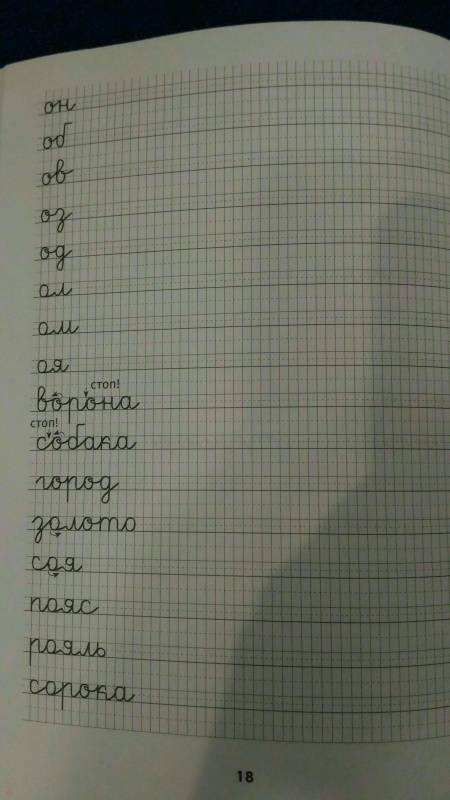 он
об
ов
оз
од
ол
ом
оя
стоп!
ворона
стоп!
собака
город
золото
соя
пояс
рояль
сорока
18